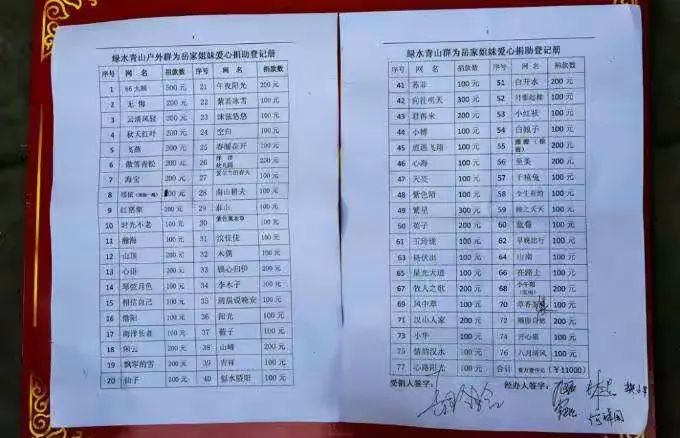 绿水青山户外群为岳家姐妹爱心捐助登记册
序号 网 名 捐款数 序号 网 名 捐款数
1 66大顺 500 元 21 午夜阳光 200 元
2 无 悔 300 元 22 紫若冰雪 100 元
3 云淡风轻 300 元 23 沫法悠悠 100 元
4 秋天红叶 200 元 24 空白 100 元
5 飞燕 200 元 25 春暖花开 100 元
6 傲雪青松 200 元 26 200 元
7 海宝 200 元 27 100 元
8 28 南山樵夫 100 元
9 红苹果 200 元 29 100 元
10 时光不老 100 元 30 100 元
11 瀚海 100 元 31 汉佳佳 100 元
12 山顶 100 元 32 木偶 100 元
13 心语 100 元 33 锁心归价 200 元
14 琴弦月色 100 元 34 李木子 100 元
15 相信自己 100 元 35 清晨说晚安 100 元
16 100 元 36 阳光 100 元
17 南洋长者 100 元 37 薇子 100 元
18 闲云 200 元 38 山峰 200 元
19 飘零的雪 100 元 39 吉祥 100 元
20 仙子 200 元 40 似水骄阳 100 元
绿水青山群为岳家姐妹爱心捐助登记册
序号 网 名 捐款数 序号 网 名 捐款数
41 苏菲 100 元 51 白开水 200 元
42 向往明天 300 元 52 100 元
43 君再来 200 元 53 小红秋 100 元
44 小博 100 元 54 白娘子 100 元
45 逍遥飞翔 100 元 55 200 元
46 心海 100 元 56 至美 200 元
47 天亮 100 元 57 100 元
48 紫色陌 100 元 58 今生有约 100 元
49 繁星 300 元 59 100 元
50 英子 200 元 60 100 元
61 玉玲珑 100 元 62 早晚出行 100 元
63 100 元 64 山南 100 元
65 星光大道 100 元 66 在路上 100 元
67 牧人之歌 200 元 68 200 元
69 风中草 100 元 70 100 元
71 汉山人家 200 元 72 200 元
73 小华 100 元 74 开心果 100 元
75 情韵汉水 100 元 76 八月清风 100 元
77 心路阳光 100 元 合计 壹万壹仟元(¥11000)
受捐人签字: 经办人签字: